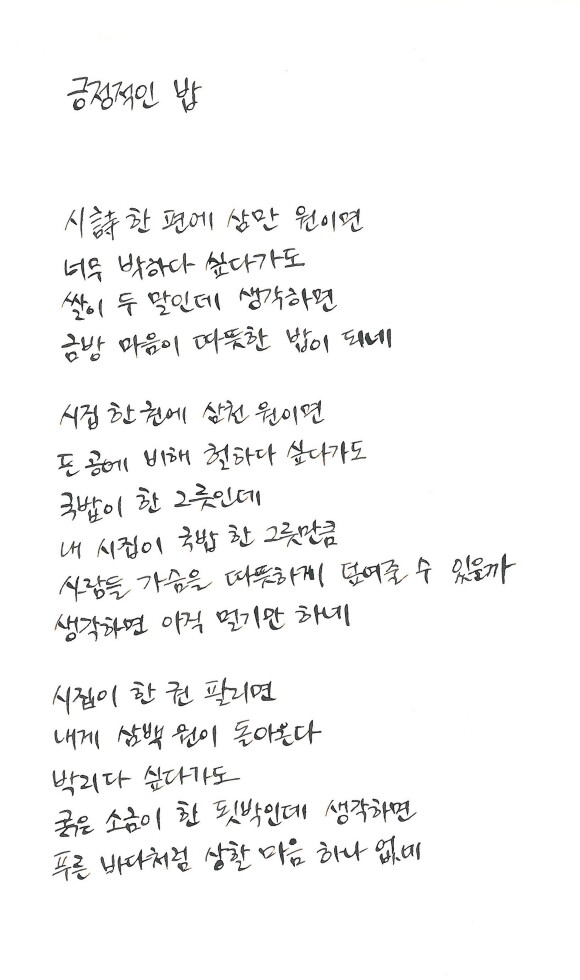 긍정적인 밥
시詩 한 편에 삼만 원이면
너무 박하다 싶다가도
쌀이 두 말인데 생각하면
금방 마음이 따뜻한 밥이 되네
시집 한 권에 삼천 원이면
든 공에 비해 헐하다 싶다가도
국밥이 한 그릇인데
내 시집이 국밥 한 그릇만큼
사람들 가슴을 따뜻하게 덮여줄 수 있을까
생각하면 아직 멀기만 하네
시집이 한 권 팔리면
내게 삼백 원이 돌아온다
박리다 싶다가도
굵은 소금이 한 됫박인데 생각하면
푸른 바다처럼 상할 마음 하나 없네